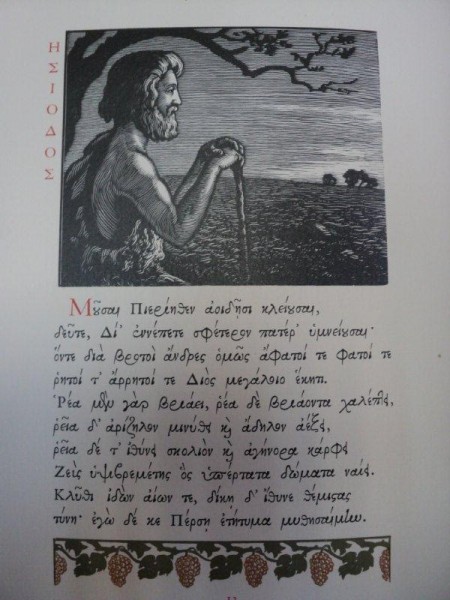 ΗΣΙΟΔΟΣ
Μοῦσαι Πιερίηθεν ἀοιδῇσι κλείουσαι,
δεῦτε, Δί' ἐννέπετε σφέτερον πατέρ' ὑμνείουσαι·
ὅντε διὰ βροτοὶ ἄνδρες ὁμῶς ἄφατοί τε φατοί τε
ῥητοί τ' ἄρρητοί τε Διὸς μεγάλοιο ἕκητι.
Ῥέα μὲν γὰρ βριάει, ῥέα δὲ βριάοντα χαλέπτει,
ῥεῖα δ' ἀρίζηλον μινύθει καὶ ἄδηλον ἀέξει,
ῥεῖα δέ τ' ἰθύνει σκολιὸν καὶ ἀγήνορα κάρφει
Ζεὺς ὑψιβρεμέτης ὃς ὑπέρτατα δώματα ναίει.
Κλῦθι ἰδὼν ἀίων τε, δίκῃ δ' ἴθυνε θέμιστας
τύνη· ἐγὼ δέ κε Πέρσῃ ἐτήτυμα μυθησαίμην.